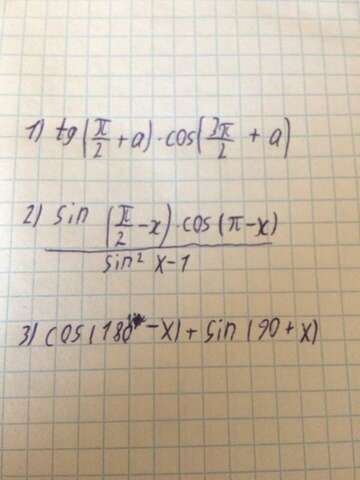 1) tg(π/2 + a)·cos(3π/2 + a)
2) sin (π/2 - x)·cos(π - x)
sin² x - 1
3) cos(180° - x) + sin(90 + x)